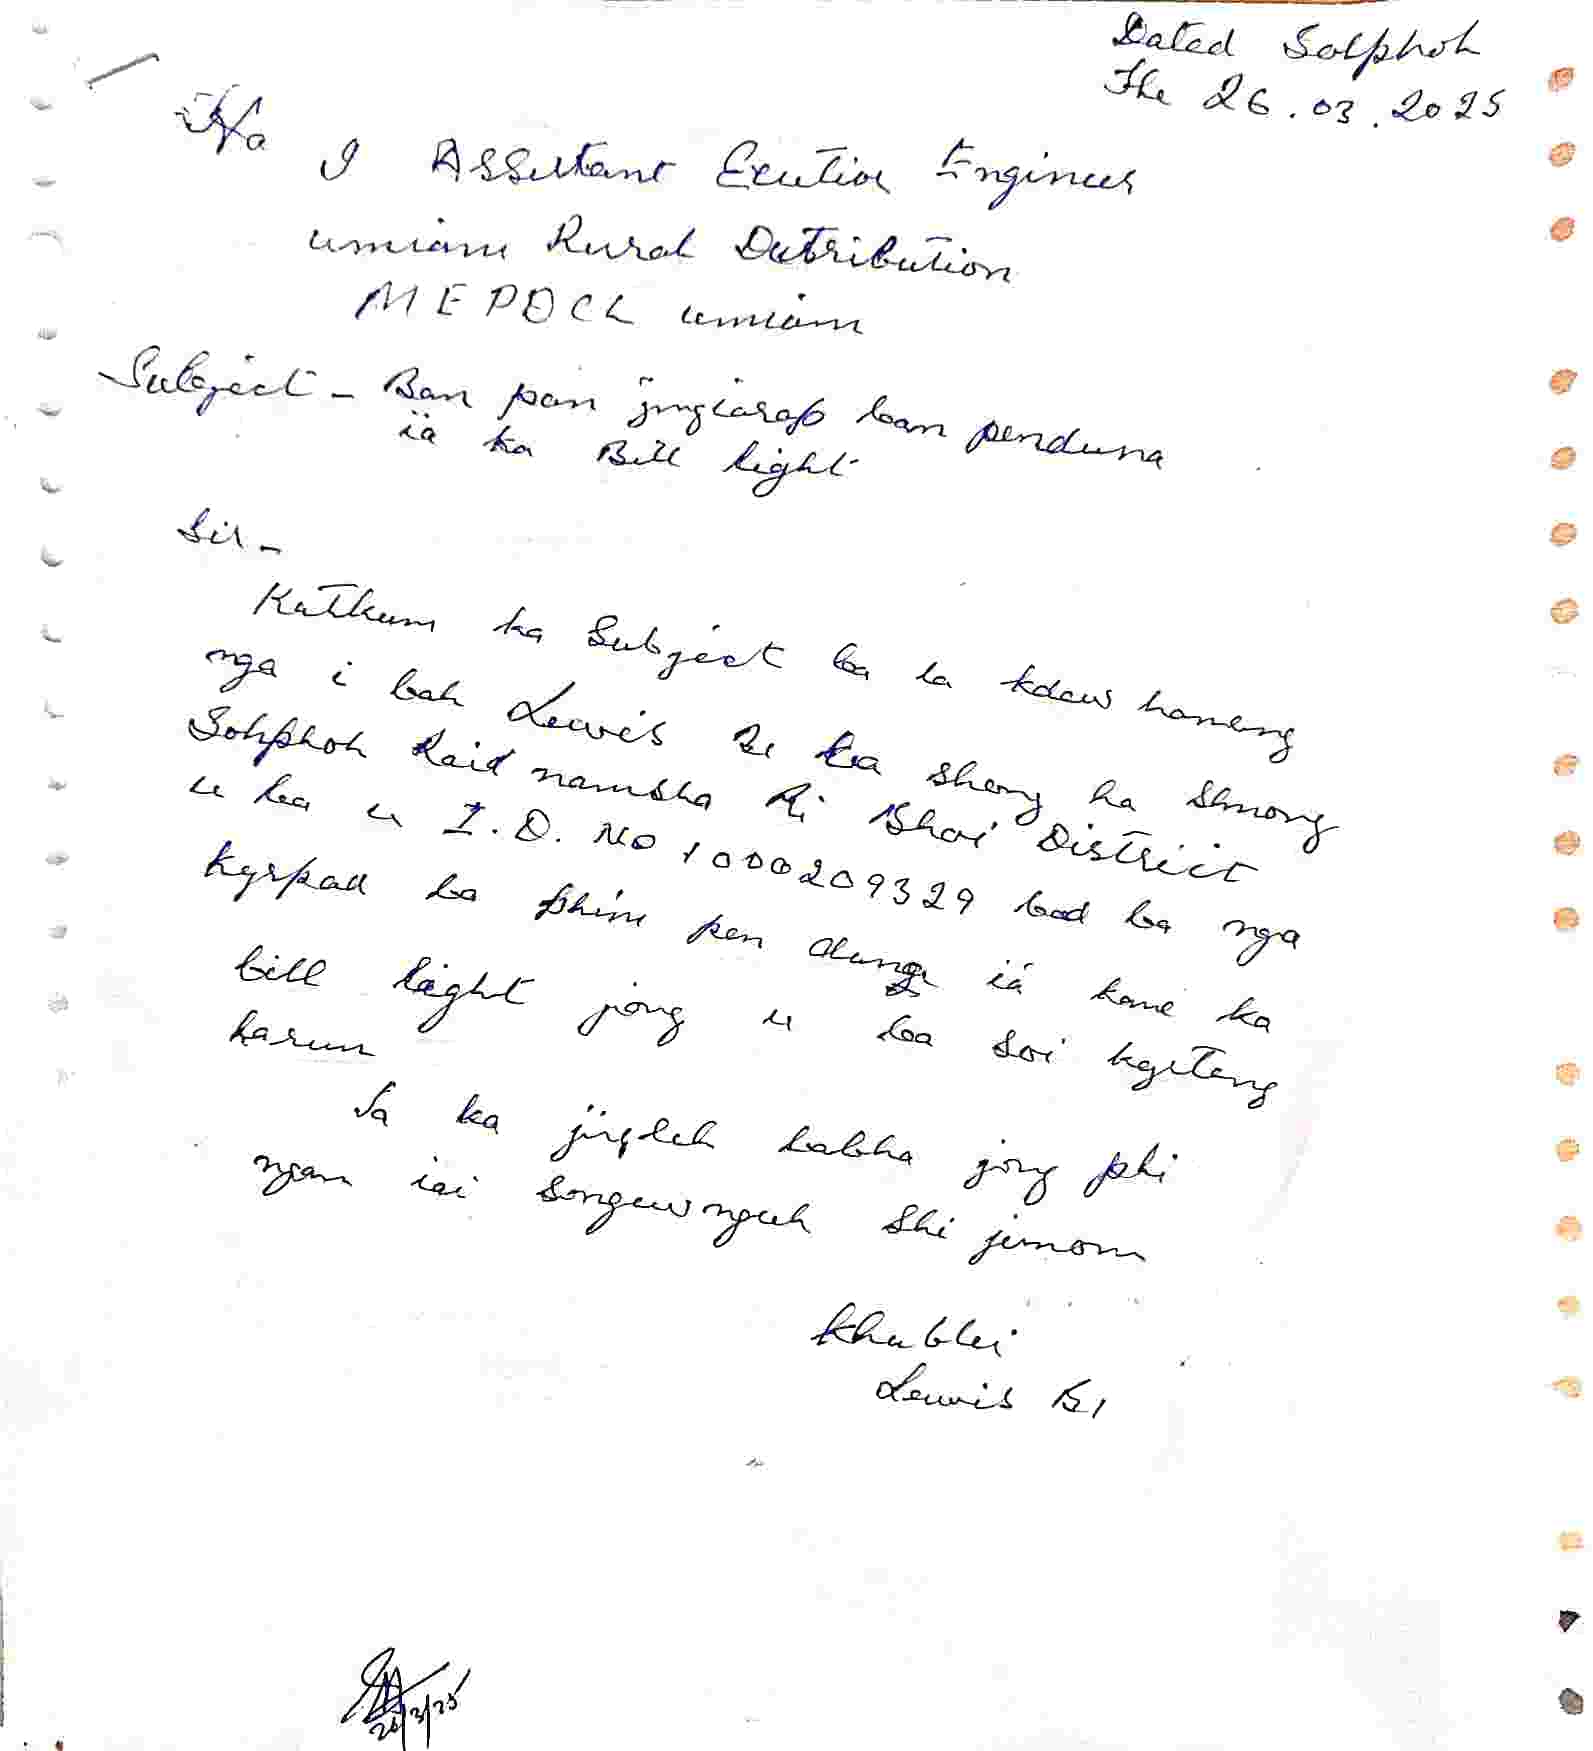 Dated Solphoh
The 26.03.2025
Ha
I Assistant Ecutive Engineer
umiam Rural Distribution
MEPDCL umiam
Subject - Ban pan jingiarap ban penduna
ïa ka Bill light
Sir -
Katkum ka Subject ba la kdew haneng
nga i bah Lewis ba shong ha shnong
Sohphoh Raid namsha Ri Bhoi District
u ba u I.D. No 1000209329 bad ba nga
kyrpad ba phim pen dung ïa kane ka
bill light jong u ba soi kyrteng
harum
Ia ka jingleh babha jong phi
ngan iai sngewnguh shi jinom
Khublei
Lewis
26/3/25